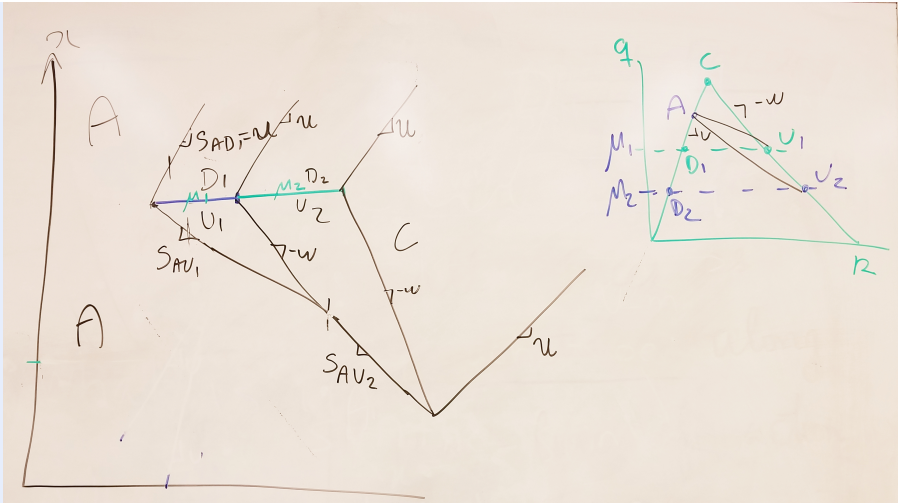 x
A
S_AD1=u
u
u
D1
μ1
U1
μ2
D2
U2
S_AU1
-w
C
-w
A
S_AU2
u
q
C
A
-w
u
μ1
D1
U1
μ2
D2
U2
k